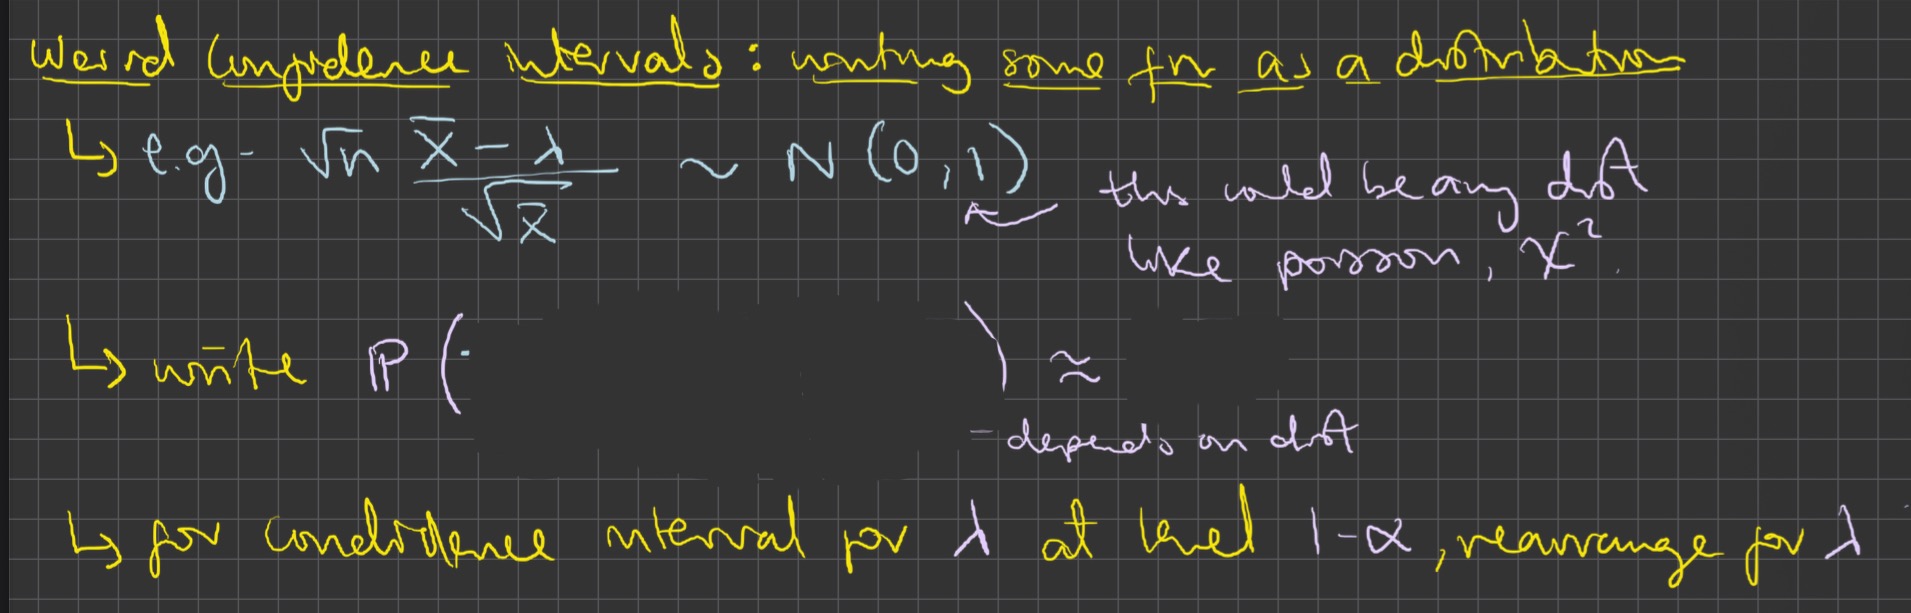 Weird Confidence intervals: writing some fn as a distribution
↳ e.g. √n (X̄ - λ)/√X̄ ~ N(0,1)
this could be any dist
like poisson, χ².
↳ write ℙ( ) ≈
- depends on dist
↳ for condidence interval for λ at level 1-α, rearrange for λ